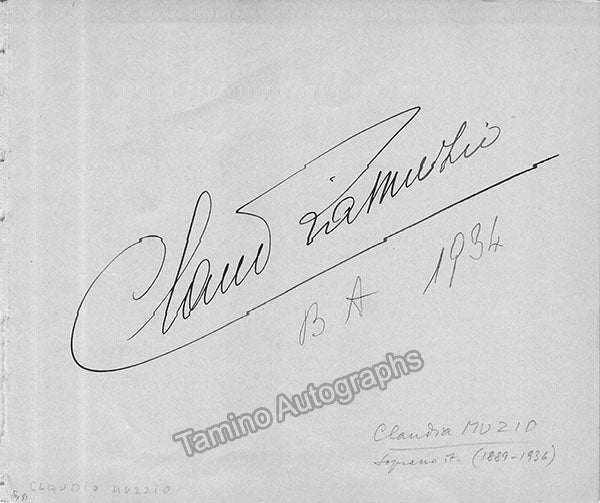 Claudia Muzio
B A 1934
Tamino Autographs
Claudia MUZIO
Soprano it. (1889-1936)
CLAUDIO MUZZIO